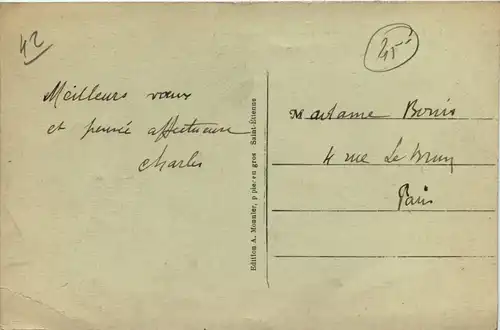 42
45
Meilleurs vœux
et pensée affectueuse
Charles
Edition A. Mosnier, papier en gros Saint-Étienne
Madame
4 rue Le
Paris